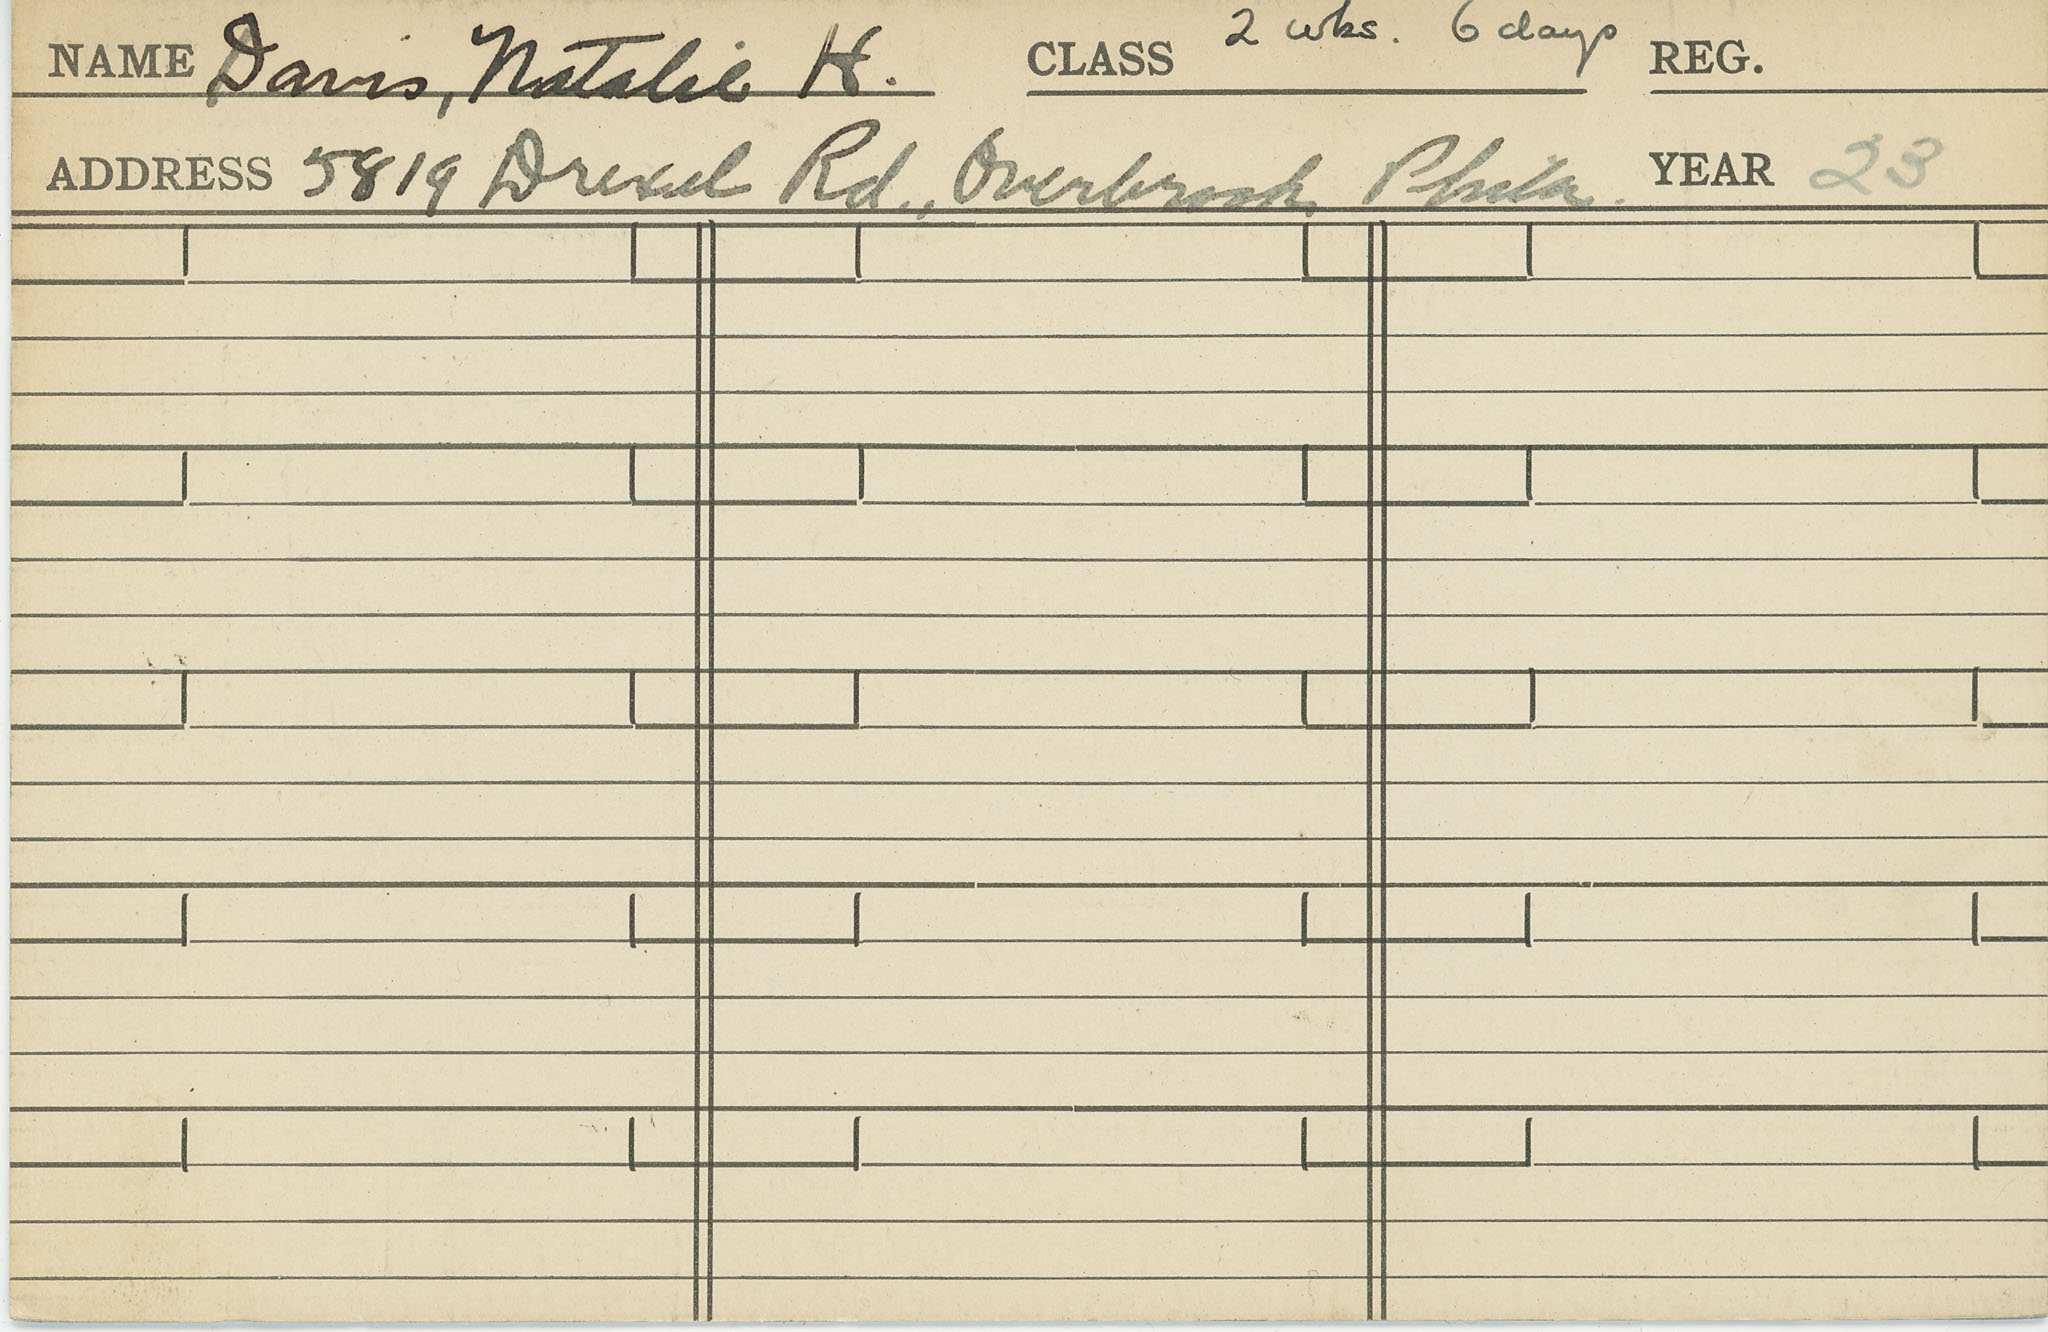 NAME Davis, Natalie H. CLASS 2 wks. 6 days REG.
ADDRESS 5819 Drexel Rd., Overbrook, Phila. YEAR 23